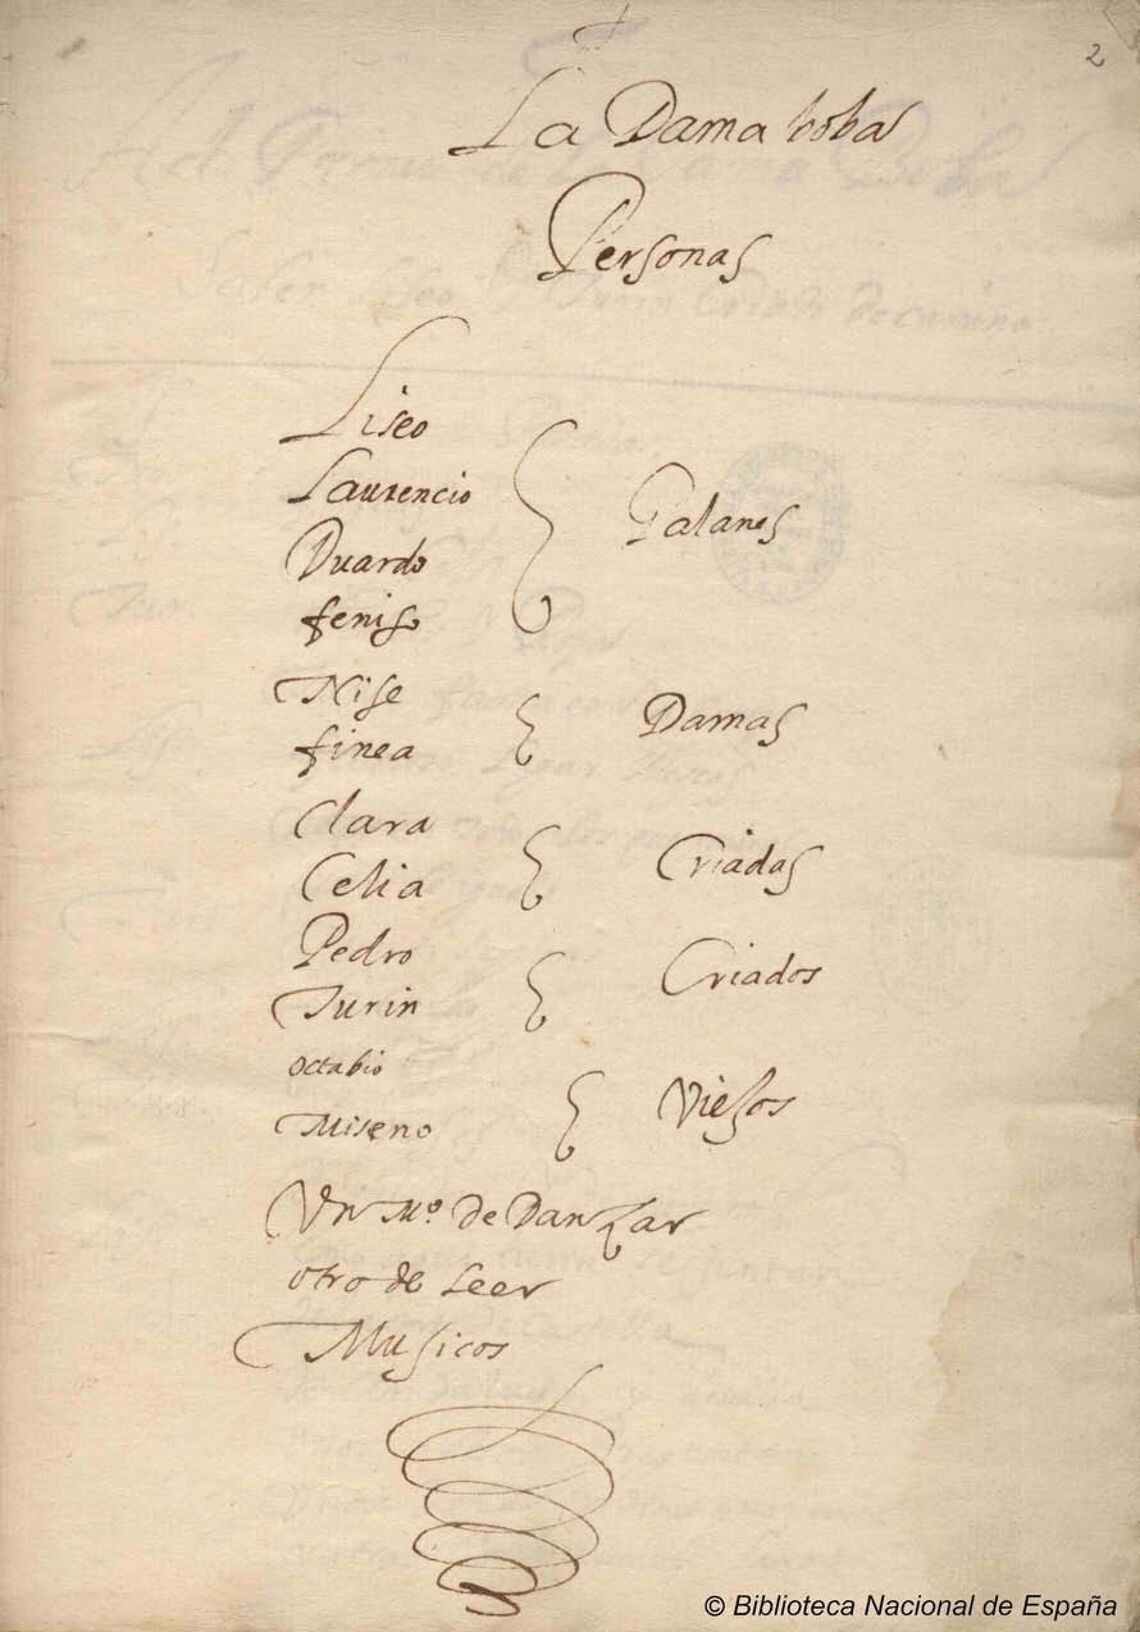 2
La Dama boba
Personas
Liseo
Laurencio
Duardo
feniso
Galanes
Nise
finea
Damas
Clara
Celia
Criadas
Pedro
Turin
Criados
octabio
Miseno
Viejos
Un Mº. de Danzar
otro de Leer
Musicos
© Biblioteca Nacional de España